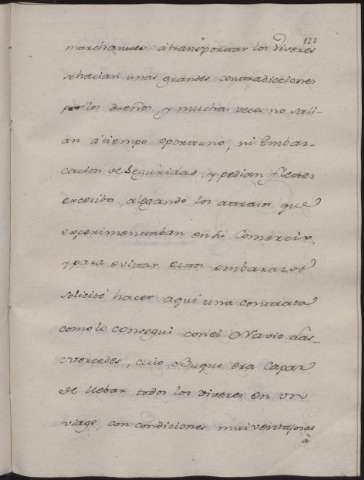 121
marchamues a transportar los viveres
se hacian unas grandes contradicciones
por los dueños, y muchas veces no sali-
an a tiempo oportuno, ni Embar-
cacion de Seguridad, y pedian fletes
excesibo, alegando los atrasos que
experimentaban en su Comercio,
y para evitar estos embarazos
solicité hacer aqui una contrata
como lo consegui con el Navio das
vverceles, cuio Buque era Capaz
de llebar todos los viveres en un
viage, con condiciones mui ventajosas
a